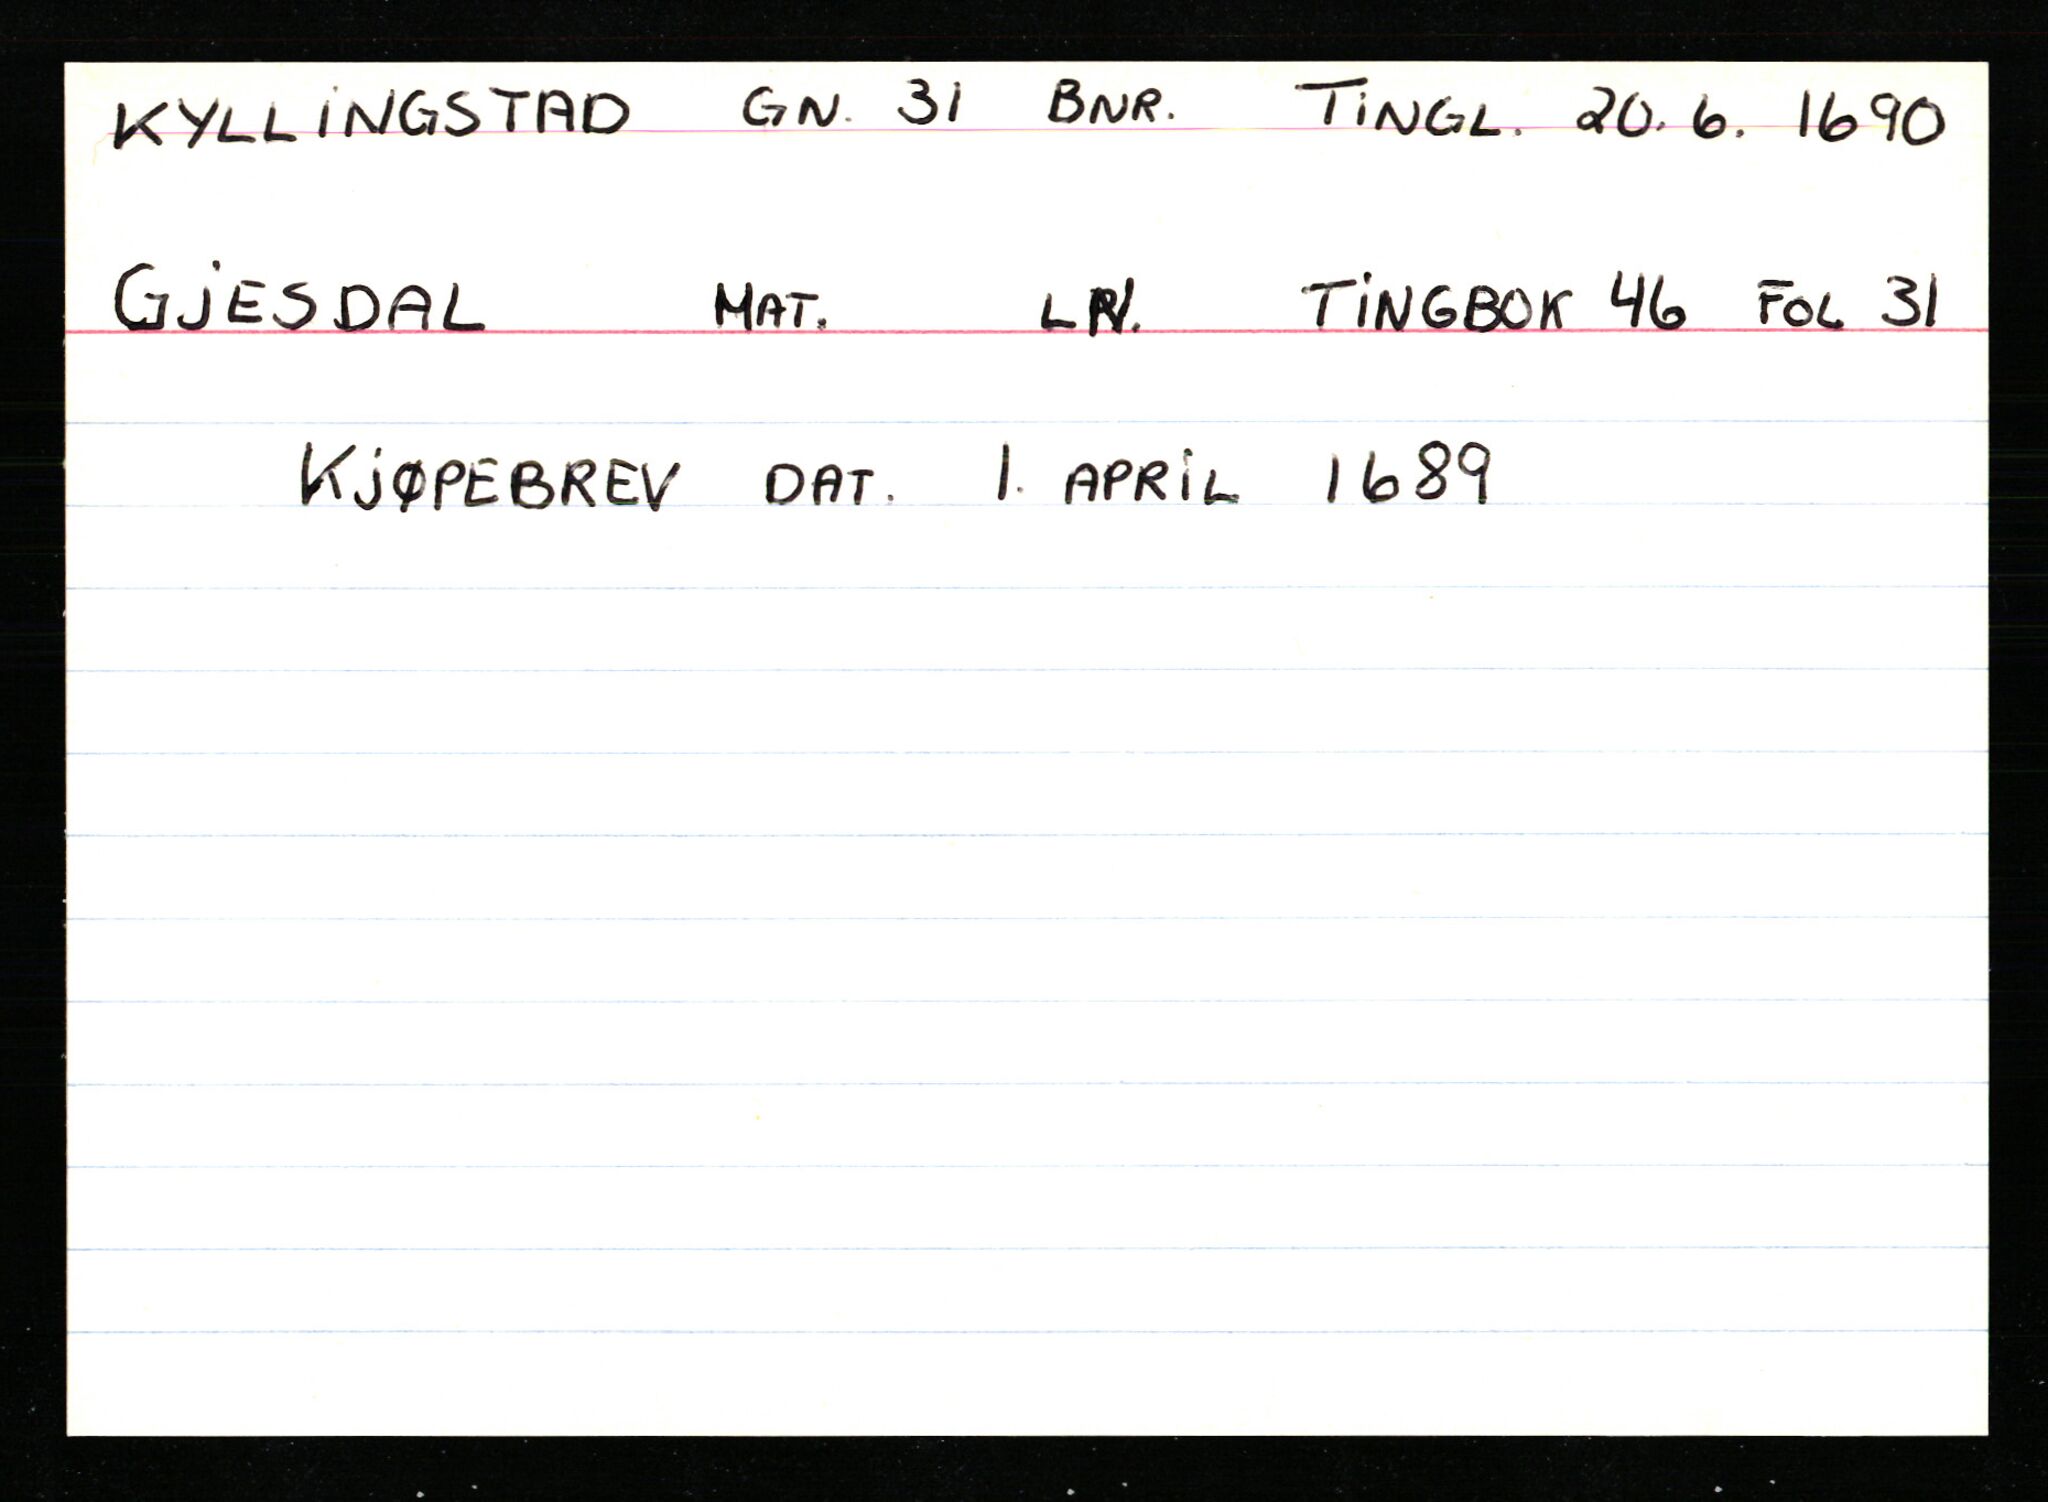 KYLLINGSTAD GN. 31 BNR. TINGL. 20.6. 1690
GJESDAL MAT. LN. TINGBOK 46 FOL 31
KJØPEBREV DAT. 1. APRIL 1689